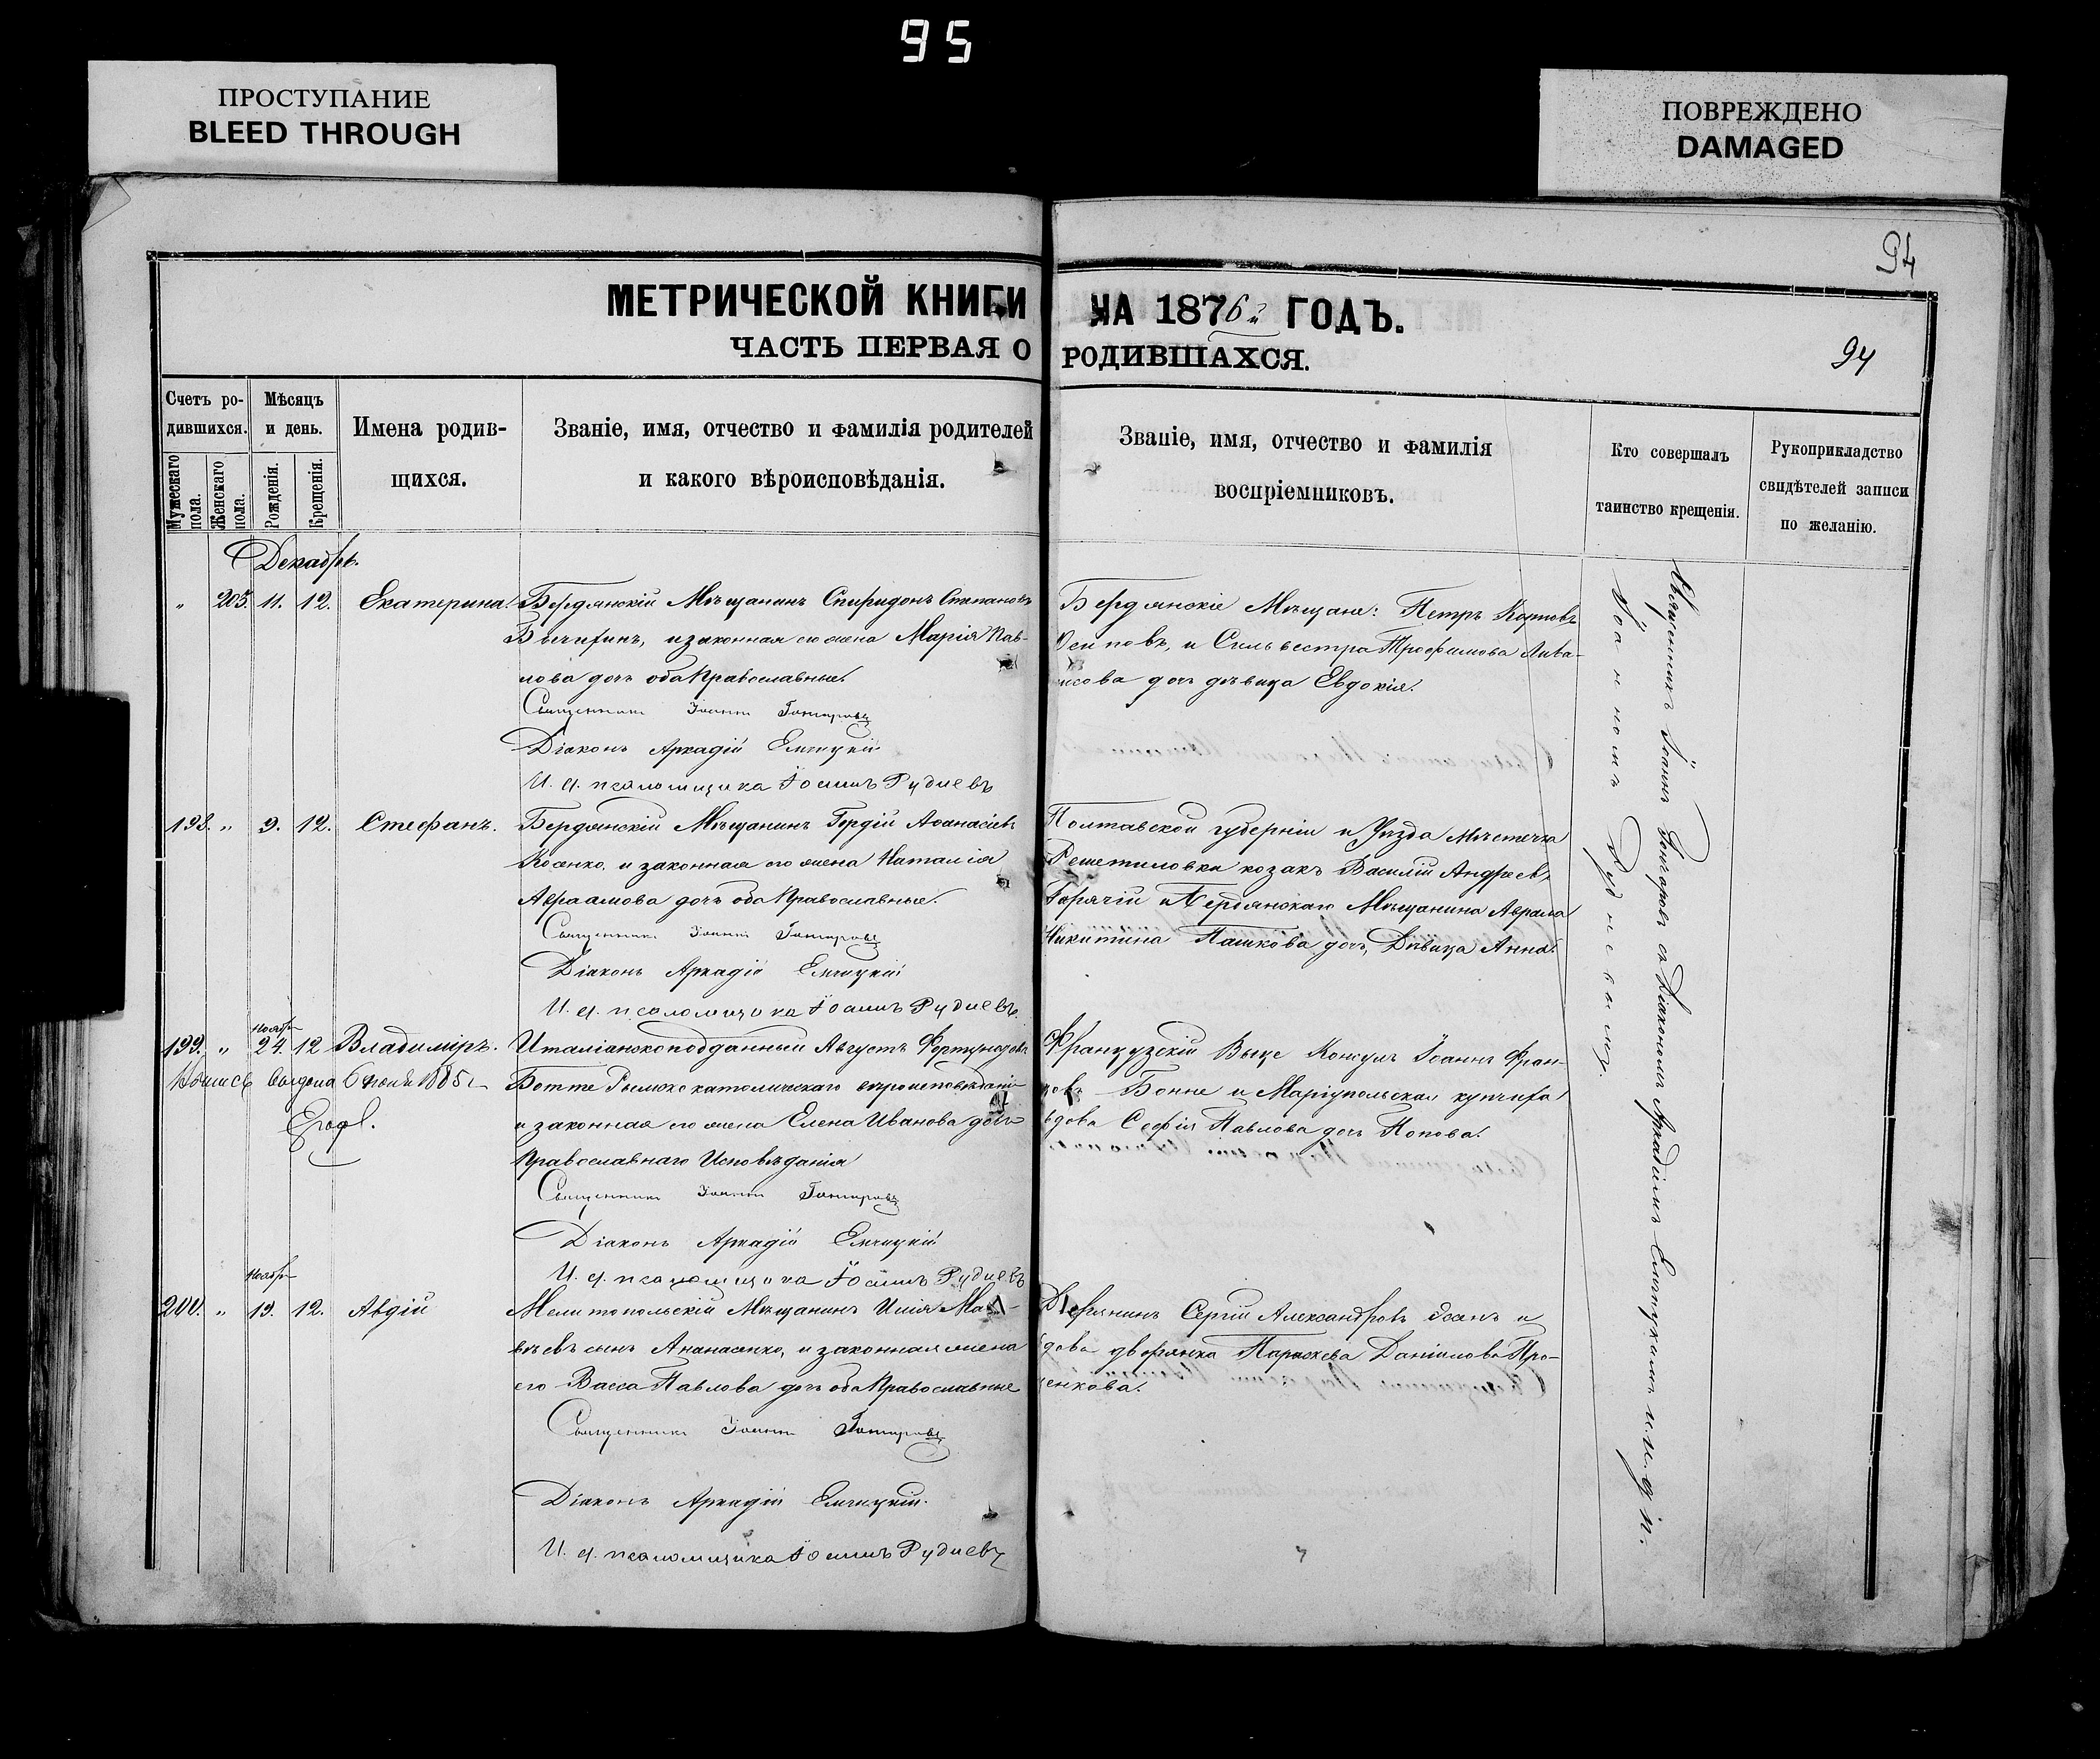 95
ПРОСТУПАНИЕ
BLEED THROUGH
ПОВРЕЖДЕНО
DAMAGED
94
94
МЕТРИЧЕСКОЙ КНИГИ НА 1876й ГОДЪ.
ЧАСТЬ ПЕРВАЯ О РОДИВШАХСЯ.
Счетъ ро-
дившихся.
Мужескаго пола.
Женскаго пола.
Мѣсяцъ
и день.
Рожденія.
Крещенія.
Имена родив-
щихся.
Званіе, имя, отчество и фамилія родителей
и какого вѣроисповѣданія.
Званіе, имя, отчество и фамилія
воспріемниковъ.
Кто совершалъ
таинство крещенія.
Рукоприкладство
свидѣтелей записи
по желанію.
Декабрь.
„ 205. 11. 12. Екатерина.
Бердянскій Мѣщанинъ Спиридонъ Степановъ
и законная его жена Марія Пав-
лова дочь оба Православные.
Священникъ Іоаннъ
Діаконъ Аркадій Емчицкій
И. д. псаломщика Іоаннъ Рудневъ
Бердянскіе Мѣщане: Петръ
Осиповъ, и Сильвестра Трофимова
дочь дѣвица Евдокія.
198. „ 9. 12. Стефанъ.
Бердянскій Мѣщанинъ Гордій Аѳанасіевъ
Косенко, и законная его жена Наталія
Авраамова дочь оба Православные.
Священникъ Іоаннъ
Діаконъ Аркадій Емчицкій
И. д. псаломщика Іоаннъ Рудневъ.
Полтавской губерніи и Уѣзда Мѣстечка
Решетиловки козакъ Василій Андреевъ
Горячій и Бердянскаго Мѣщанина Аврама
Никитина Пашкова дочь, Дѣвица Анна.
Ноября
199. „ 24. 12 Владиміръ.
выдана 6 Іюня 1885 г
Италіанскоподданный Августъ Фортунатовъ
Ботте Римско католическаго вѣроисповѣданія
и законная его жена Елена Иванова дочь
Православнаго Исповѣданія
Священникъ Іоаннъ
Діаконъ Аркадій Емчицкій
И. д. псаломщика Іоаннъ Рудневъ
Французскій Вице Консулъ Іоаннъ Фран-
цовъ Бонне и Маріупольская купчиха
вдова Софія Павлова дочь Попова.
Ноября
200. „ 19. 12. Авдій
Мелитопольскій Мѣщанинъ Илія Мат-
вѣевъ сынъ Ананасенко, и законная жена
его Васса Павлова дочь оба Православные
Священникъ Іоаннъ
Діаконъ Аркадій Емчицкій.
И. д. псаломщика Іоаннъ Рудневъ
Дворянинъ Сергій Александровъ и
вдова дворянка Параскева Даніилова Про-
ценкова.
Священникъ Іоаннъ съ Діакономъ Аркадіемъ Емчицкимъ и. д. п.
Іоанномъ Рудневымъ.